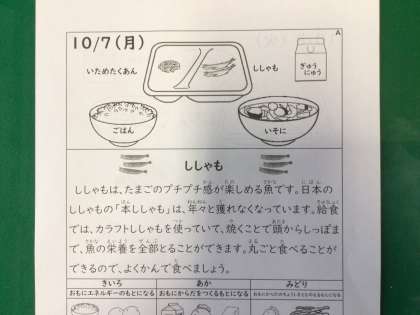 10/7(月)
A
いためたくあん
ししゃも
ぎゅう
にゅう
ごはん
いそに
ししゃも
ししゃもは、たまごのプチプチ感が楽しめる魚です。日本の
ししゃもの「本ししゃも」は、年々と獲れなくなっています。給食
では、カラフトししゃもを使っていて、焼くことで頭からしっぽま
で、魚の栄養を全部とることができます。丸ごと食べることが
できるので、よくかんで食べましょう。
きいろ
あか
みどり
おもにエネルギーのもとになる
おもにからだをつくるもとになる